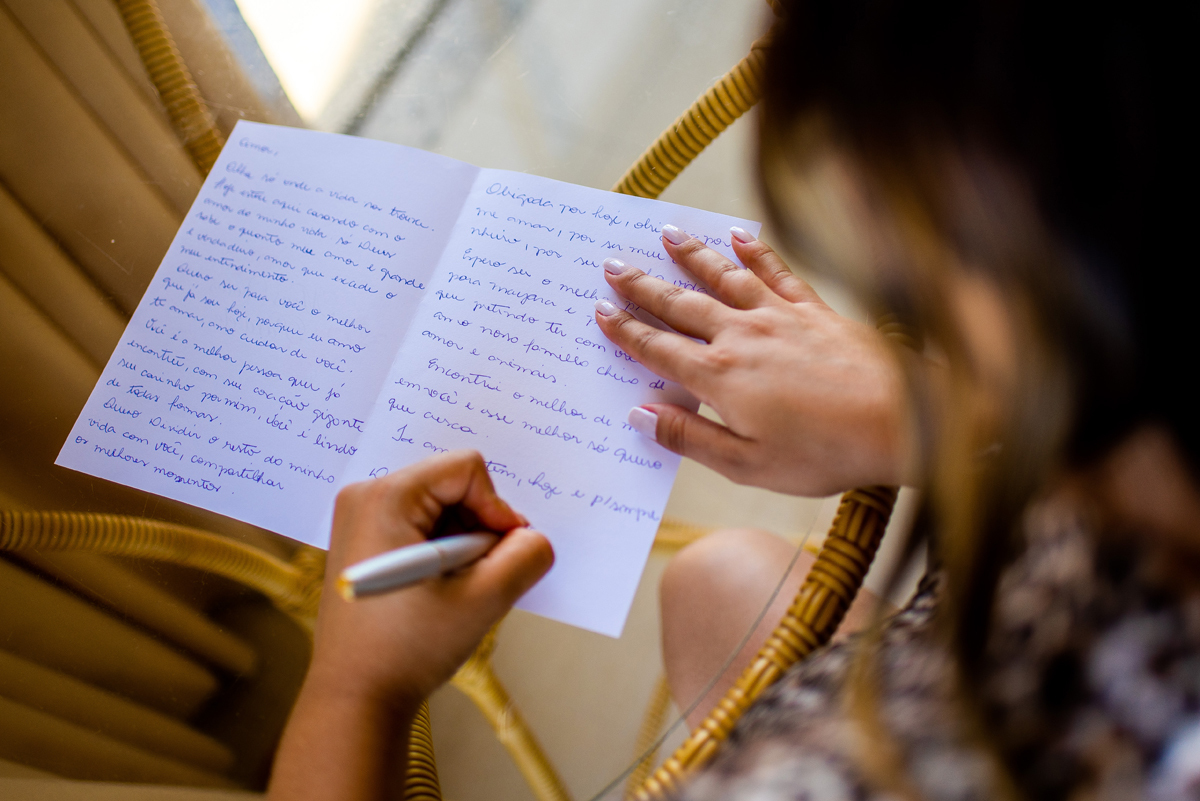 Amor,
Olha só onde a vida nos trouxe.
Hoje estou aqui casando com o
amor da minha vida só Deus
sabe o quanto meu amor é grande
e verdadeiro, amor que excede o
meu entendimento.
Quero ser para você o melhor
que já sou hoje, porque eu amo
te amar, amo cuidar de você.
Você é a melhor pessoa que já
encontrei, com seu coração gigante
seu carinho por mim, você é lindo
de todas formas.
Quero Dividir o resto da minha
vida com você, compartilhar
os melhores momentos.
Obrigada por hoje, por
me amar, por ser meu
nheiro, por ser vida
Espero ser o melhor
para
que pretendo ter com você
amo nossa família cheia de
amor e animais.
Encontrei o melhor de
em você e esse melhor só quero
que cresça.
Te hoje e p/sempre